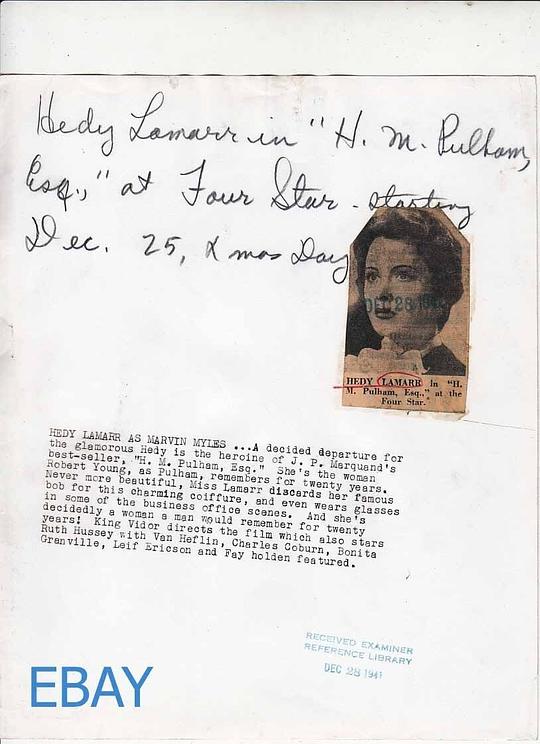 Hedy Lamarr in "H. M. Pulham,
Esq.," at Four Star - starting
Dec. 25, Xmas Day
DEC 28 1941
HEDY LAMARR in "H.
M. Pulham, Esq.," at the
Four Star.
HEDY LAMARR AS MARVIN MYLES ...A decided departure for
the glamorous Hedy is the heroine of J. P. Marquand's
best-seller, "H. M. Pulham, Esq." She's the woman
Robert Young, as Pulham, remembers for twenty years.
Never more beautiful, Miss Lamarr discards her famous
bob for this charming coiffure, and even wears glasses
in some of the business office scenes. And she's
decidedly a woman a man would remember for twenty
years! King Vidor directs the film which also stars
Ruth Hussey with Van Heflin, Charles Coburn, Bonita
Granville, Leif Ericson and Fay holden featured.
RECEIVED EXAMINER
REFERENCE LIBRARY
DEC 28 1941
EBAY